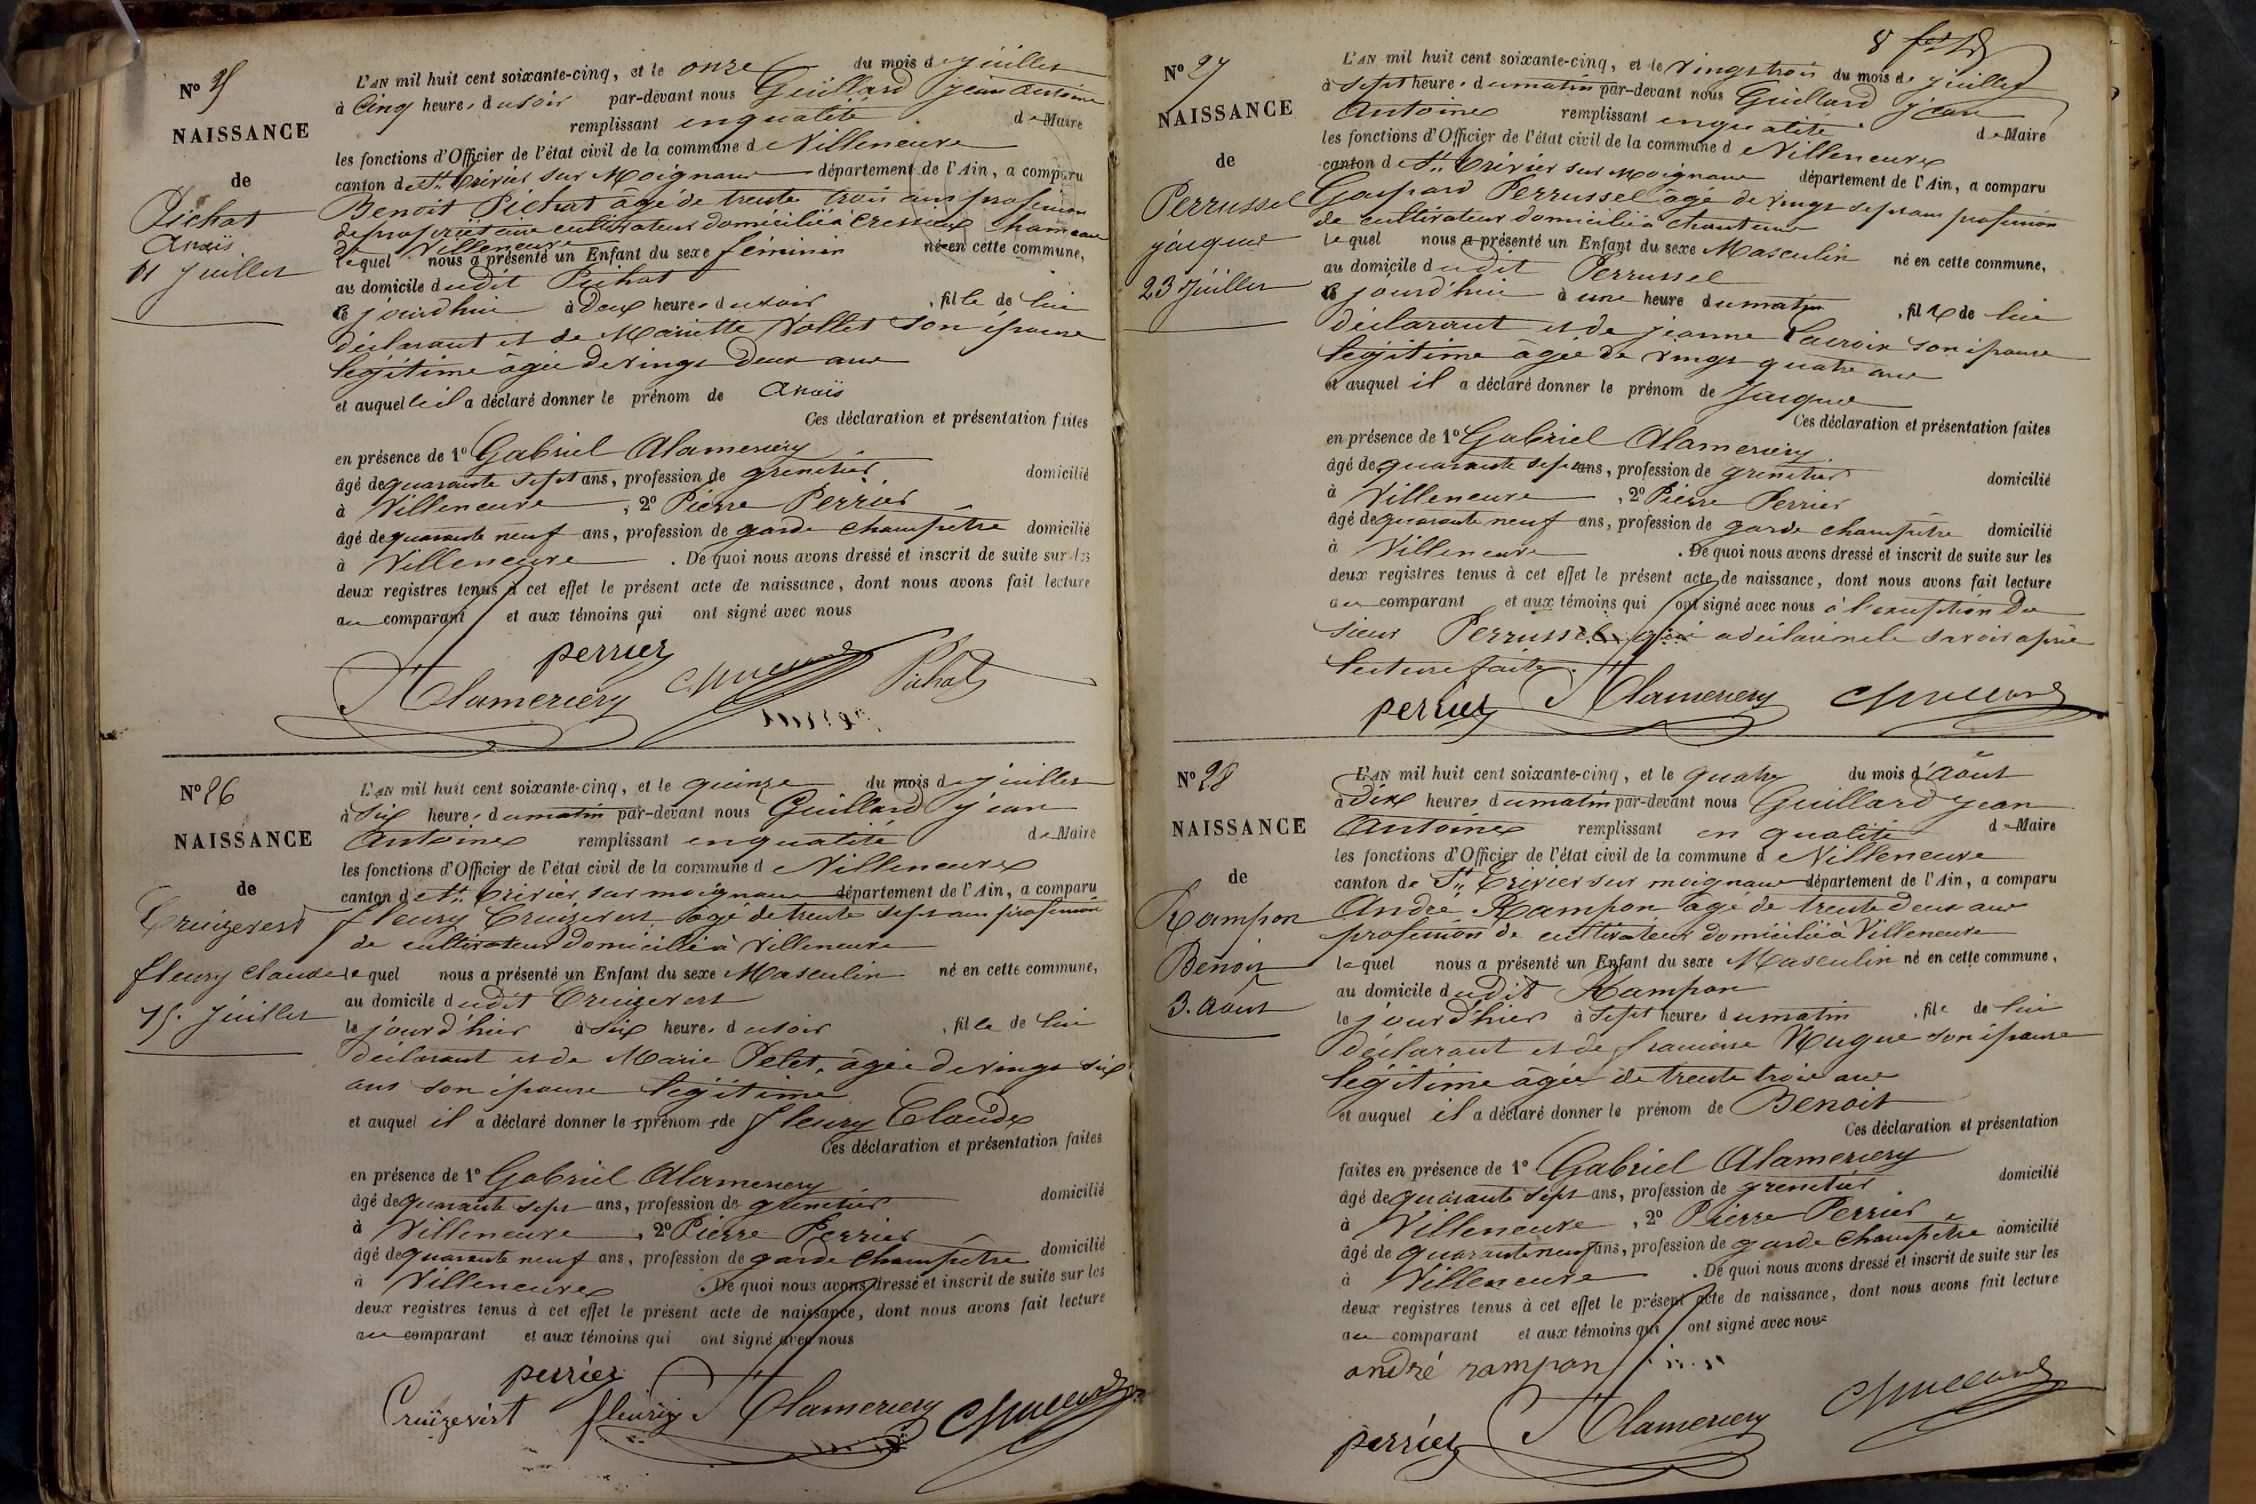 Nº 25
NAISSANCE
de
Pichat
Anaïs
11 Juillet
L'AN mil huit cent soixante-cinq, et le onze du mois de juillet
à Cinq heures du soir par-devant nous Guillard jean antoine
remplissant en qualité de Maire
les fonctions d'Officier de l'état civil de la commune de Villeneuve
canton de St. Trivier sur Moignans département de l'Ain, a comparu
Benoit Pichat âgé de trente trois ans profession
de propriétaire cultivateur domicilié à hameau
de Villeneuve
lequel nous a présenté un Enfant du sexe féminin né en cette commune,
au domicile dudit Pichat
ce jourd'hui à deux heures du soir, fille de lui
déclarant et de Mariette Vollet son épouse
légitime âgée de vingt deux ans
et auquel il a déclaré donner le prénom de Anaïs
Ces déclaration et présentation faites
en présence de 1º Gabriel Alamercery
âgé de quarante sept ans, profession de grenetier domicilié
à Villeneuve, 2º Pierre Perrier
âgé de quarante neuf ans, profession de garde champêtre domicilié
à Villeneuve. De quoi nous avons dressé et inscrit de suite sur les
deux registres tenus à cet effet le présent acte de naissance, dont nous avons fait lecture
au comparant et aux témoins qui ont signé avec nous
perrier
Alamercery Guillard Pichat
Nº 26
NAISSANCE
de
Cruizevert
fleury Claude
15. Juillet
L'AN mil huit cent soixante-cinq, et le quinze du mois de juillet
à six heures du matin par-devant nous Guillard jean
Antoine remplissant en qualité de Maire
les fonctions d'Officier de l'état civil de la commune de Villeneuve
canton de St. Trivier sur moignans département de l'Ain, a comparu
fleury Cruizevert âgé de trente sept ans profession
de cultivateur domicilié à Villeneuve
lequel nous a présenté un Enfant du sexe Masculin né en cette commune,
au domicile dudit Cruizevert
le jourd'hier à six heures du soir, fils de lui
déclarant et de Marie Pelet, âgée de vingt six
ans son épouse légitime
et auquel il a déclaré donner les prénoms de fleury Claude
Ces déclaration et présentation faites
en présence de 1º Gabriel Alamercery
âgé de quarante sept ans, profession de grenetier domicilié
à Villeneuve, 2º Pierre Perrier
âgé de quarante neuf ans, profession de garde champêtre domicilié
à Villeneuve. De quoi nous avons dressé et inscrit de suite sur les
deux registres tenus à cet effet le présent acte de naissance, dont nous avons fait lecture
au comparant et aux témoins qui ont signé avec nous
perrier
Cruizevert fleury Alamercery Guillard
8
Nº 27
NAISSANCE
de
Perrussel
jacques
23 Juillet
L'AN mil huit cent soixante-cinq, et le vingt trois du mois de juillet
à sept heures du matin par-devant nous Guillard jean
Antoine remplissant en qualité de Maire
les fonctions d'Officier de l'état civil de la commune de Villeneuve
canton de St. Trivier sur Moignans département de l'Ain, a comparu
Gaspard Perrussel âgé de vingt sept ans profession
de cultivateur domicilié à
lequel nous a présenté un Enfant du sexe Masculin né en cette commune,
au domicile dudit Perrussel
ce jourd'hui à une heure du matin, fils de lui
déclarant et de jeanne Lacroix son épouse
légitime âgée de vingt quatre ans
et auquel il a déclaré donner le prénom de Jacques
Ces déclaration et présentation faites
en présence de 1º Gabriel Alamercery
âgé de quarante sept ans, profession de grenetier domicilié
à Villeneuve, 2º Pierre Perrier
âgé de quarante neuf ans, profession de garde champêtre domicilié
à Villeneuve. De quoi nous avons dressé et inscrit de suite sur les
deux registres tenus à cet effet le présent acte de naissance, dont nous avons fait lecture
au comparant et aux témoins qui ont signé avec nous à l'exception du
sieur Perrussel qui a déclaré ne le savoir après
lecture faite.
perrier Alamercery Guillard
Nº 28
NAISSANCE
de
Rampon
Benoit
3. Août
L'AN mil huit cent soixante-cinq, et le quatre du mois d'Août
à dix heures du matin par-devant nous Guillard Jean
Antoine remplissant en qualité de Maire
les fonctions d'Officier de l'état civil de la commune de Villeneuve
canton de St. Trivier sur moignans département de l'Ain, a comparu
André Rampon âgé de trente deux ans
profession de cultivateur domicilié à Villeneuve
lequel nous a présenté un Enfant du sexe Masculin né en cette commune,
au domicile dudit Rampon
le jourd'hier à sept heures du matin, fils de lui
déclarant et de francoise Mugue son épouse
légitime âgée de trente trois ans
et auquel il a déclaré donner le prénom de Benoit
Ces déclaration et présentation
faites en présence de 1º Gabriel Alamercery
âgé de quarante sept ans, profession de grenetier domicilié
à Villeneuve, 2º Pierre Perrier
âgé de quarante neuf ans, profession de garde champêtre domicilié
à Villeneuve. De quoi nous avons dressé et inscrit de suite sur les
deux registres tenus à cet effet le présent acte de naissance, dont nous avons fait lecture
au comparant et aux témoins qui ont signé avec nous
andré rampon
perrier Alamercery Guillard